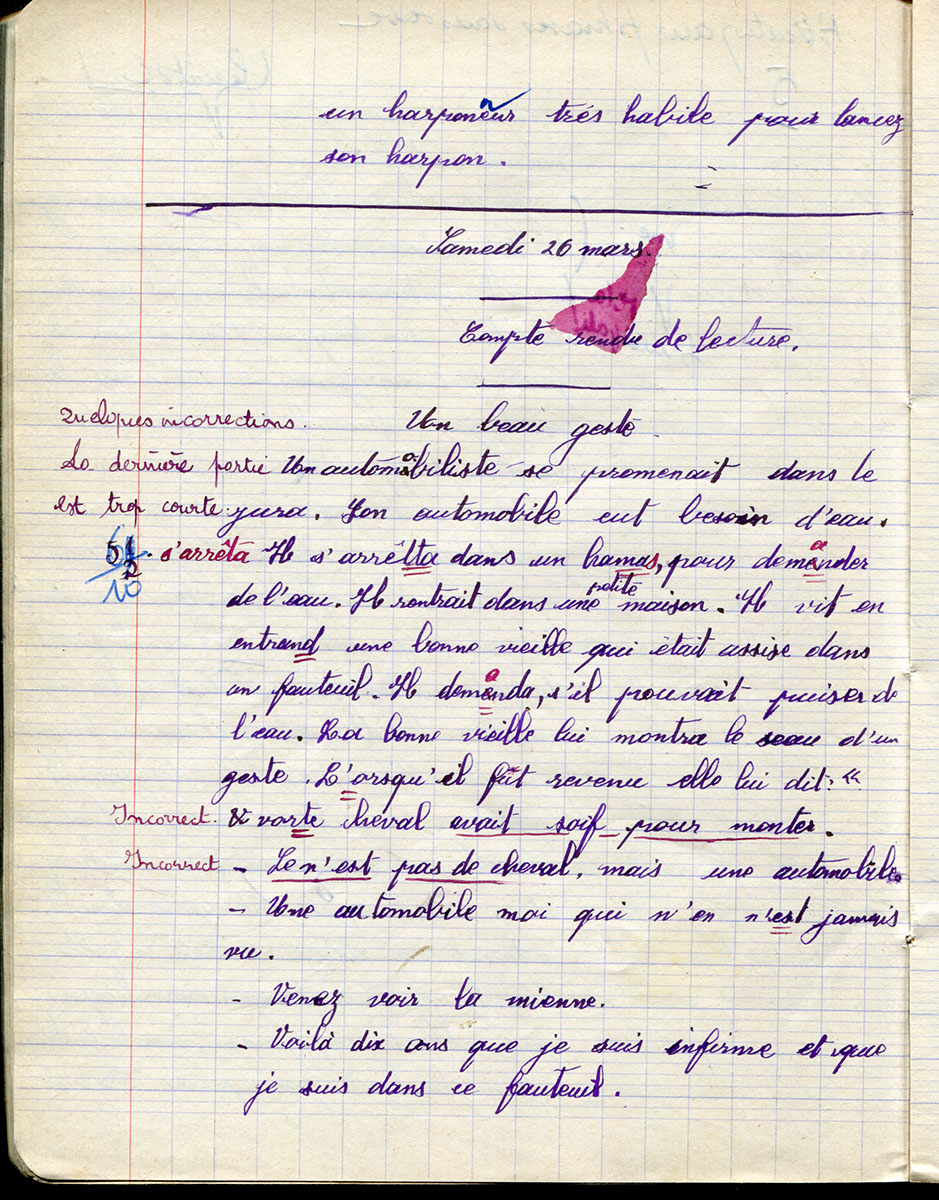 un harponeur très habile pour lancez
son harpon.
Samedi 26 mars.
Compte rendu de lecture.
Quelques incorrections. Un beau geste
La dernière partie Un automobiliste se promenait dans le
est trop courte jura. Son automobile eut besoin d'eau.
s'arrêta Il s'arrêtta dans un hamas, pour demander
10
petite
de l'eau. Il rentrait dans une maison. Il vit en
entrand une bonne vieille qui était assise dans
un fauteuil. Il demanda, s'il pouvait puiser de
l'eau. La bonne vieille lui montra le seau d'un
geste. L'orsqu'il fût revenu elle lui dit: «
Incorrect. vorte cheval avait soif pour monter.
Incorrect - Ce n'est pas de cheval, mais une automobile.
- Une automobile moi qui n'en n'est jamais
vu.
- Venez voir la mienne.
- Voilà dix ans que je suis infirme et que
je suis dans ce fauteuil.